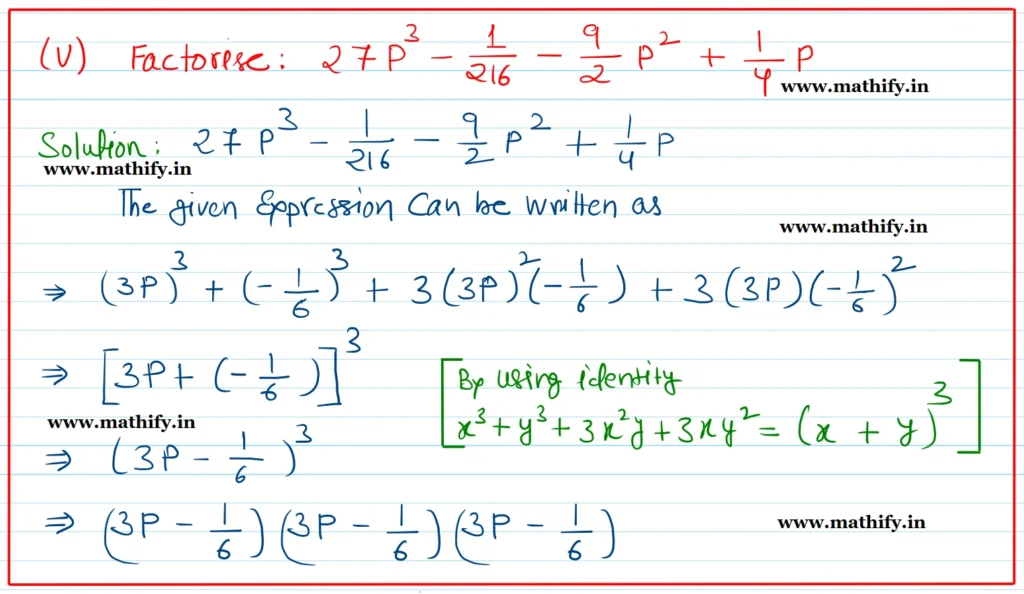 (V) Factorise: 27P³ - 1/216 - 9/2 P² + 1/4 P
www.mathify.in
Solution: 27P³ - 1/216 - 9/2 P² + 1/4 P
www.mathify.in
The given Expression Can be written as
www.mathify.in
⇒ (3P)³ + (-1/6)³ + 3(3P)²(-1/6) + 3(3P)(-1/6)²
⇒ [3P + (-1/6)]³
[By using identity
x³ + y³ + 3x²y + 3xy² = (x + y)³]
www.mathify.in
⇒ (3P - 1/6)³
⇒ (3P - 1/6)(3P - 1/6)(3P - 1/6)
www.mathify.in